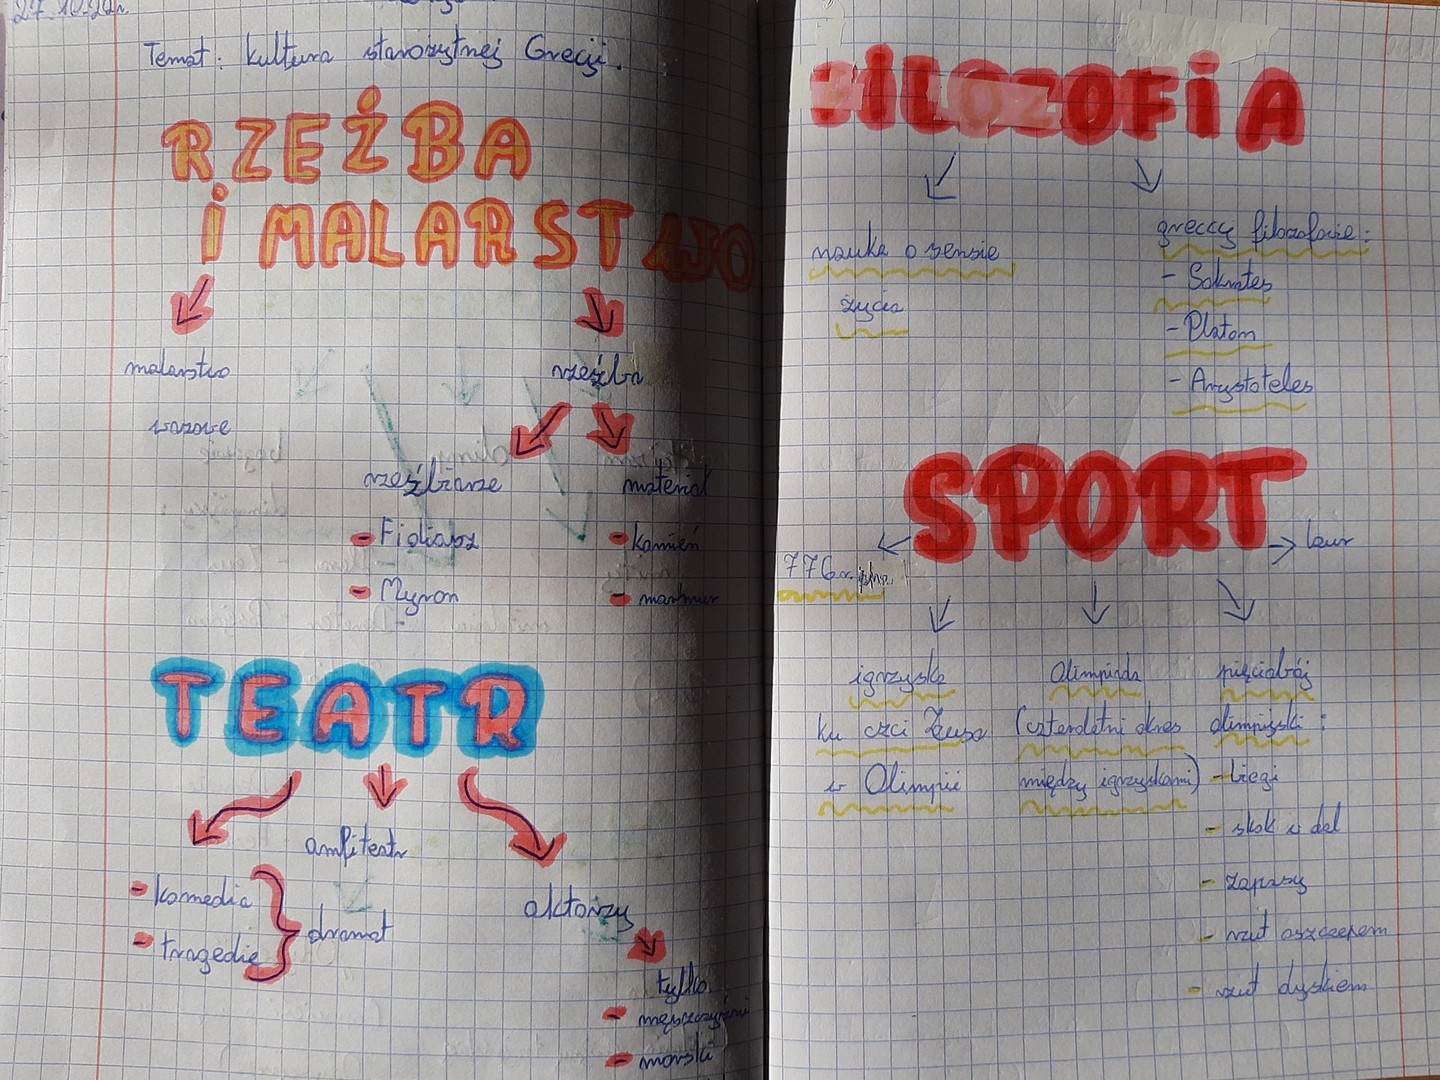 27.10.20r.
Temat: Kultura starożytnej Grecji.
RZEŹBA
i MALARSTWO
malarstwo
wazowe
rzeźba
rzeźbiarze
- Fidiasz
- Myron
materiał
- kamień
- marmur
TEATR
amfiteatr
- komedia
- tragedie
dramat
aktorzy
tylko
- mężczyźni
- maski
FILOZOFiA
nauka o sensie
życia
greccy filozofowie:
- Sokrates
- Platon
- Arystoteles
SPORT
776 r. p.n.e.
laur
igrzyska
ku czci Zeusa
w Olimpii
Olimpiada
(czteroletni okres
między igrzyskami)
pięciobój
olimpijski:
- biegi
- skok w dal
- zapasy
- rzut oszczepem
- rzut dyskiem